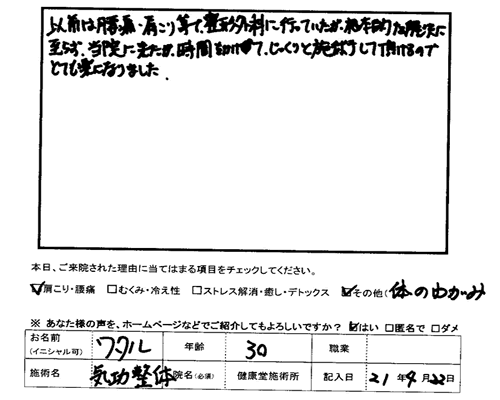 以前は腰痛・肩こり等で、整形外科に行っていたが、根本的な解決に
至らず、当院に来たが、時間を掛けて、じっくりと施術して頂けるので
とても楽になりました。
本日、ご来院された理由に当てはまる項目をチェックしてください。
☑肩こり・腰痛 □むくみ・冷え性 □ストレス解消・癒し・デトックス ☑その他(体のゆがみ
※ あなた様の声を、ホームページなどでご紹介してもよろしいですか? ☑はい □匿名で □ダメ
お名前 (イニシャル可) ワタル 年齢 30 職業
施術名 気功整体 院名(必須) 健康堂施術所 記入日 21年9月22日